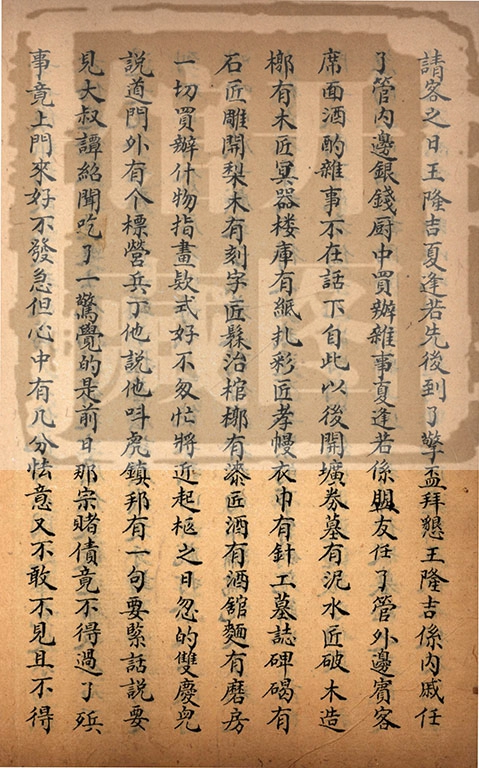 請客之日王隆吉夏逢若先後到了擎盃拜懇王隆吉係内戚任
了管内邊銀錢厨中買辦雜事夏逢若係盟友任了管外邊賓客
席面酒酌雜事不在話下自此以後開壙券墓有泥水匠破木造
槨有木匠冥器楼庫有紙扎彩匠孝幔衣巾有針工墓誌碑碣有
石匠雕開梨木有刻字匠髹治棺槨有漆匠酒有酒舘麵有磨房
一切買辦什物指畫欵式好不匆忙將近起柩之日忽的雙慶兒
説道門外有个標營兵丁他説他呌虎鎮邦有一句要緊話説要
見大叔譚紹聞吃了一驚覺的是前日那宗賭債竟不得過了殡
事竟上門來好不發急但心中有几分怯意又不敢不見且不得